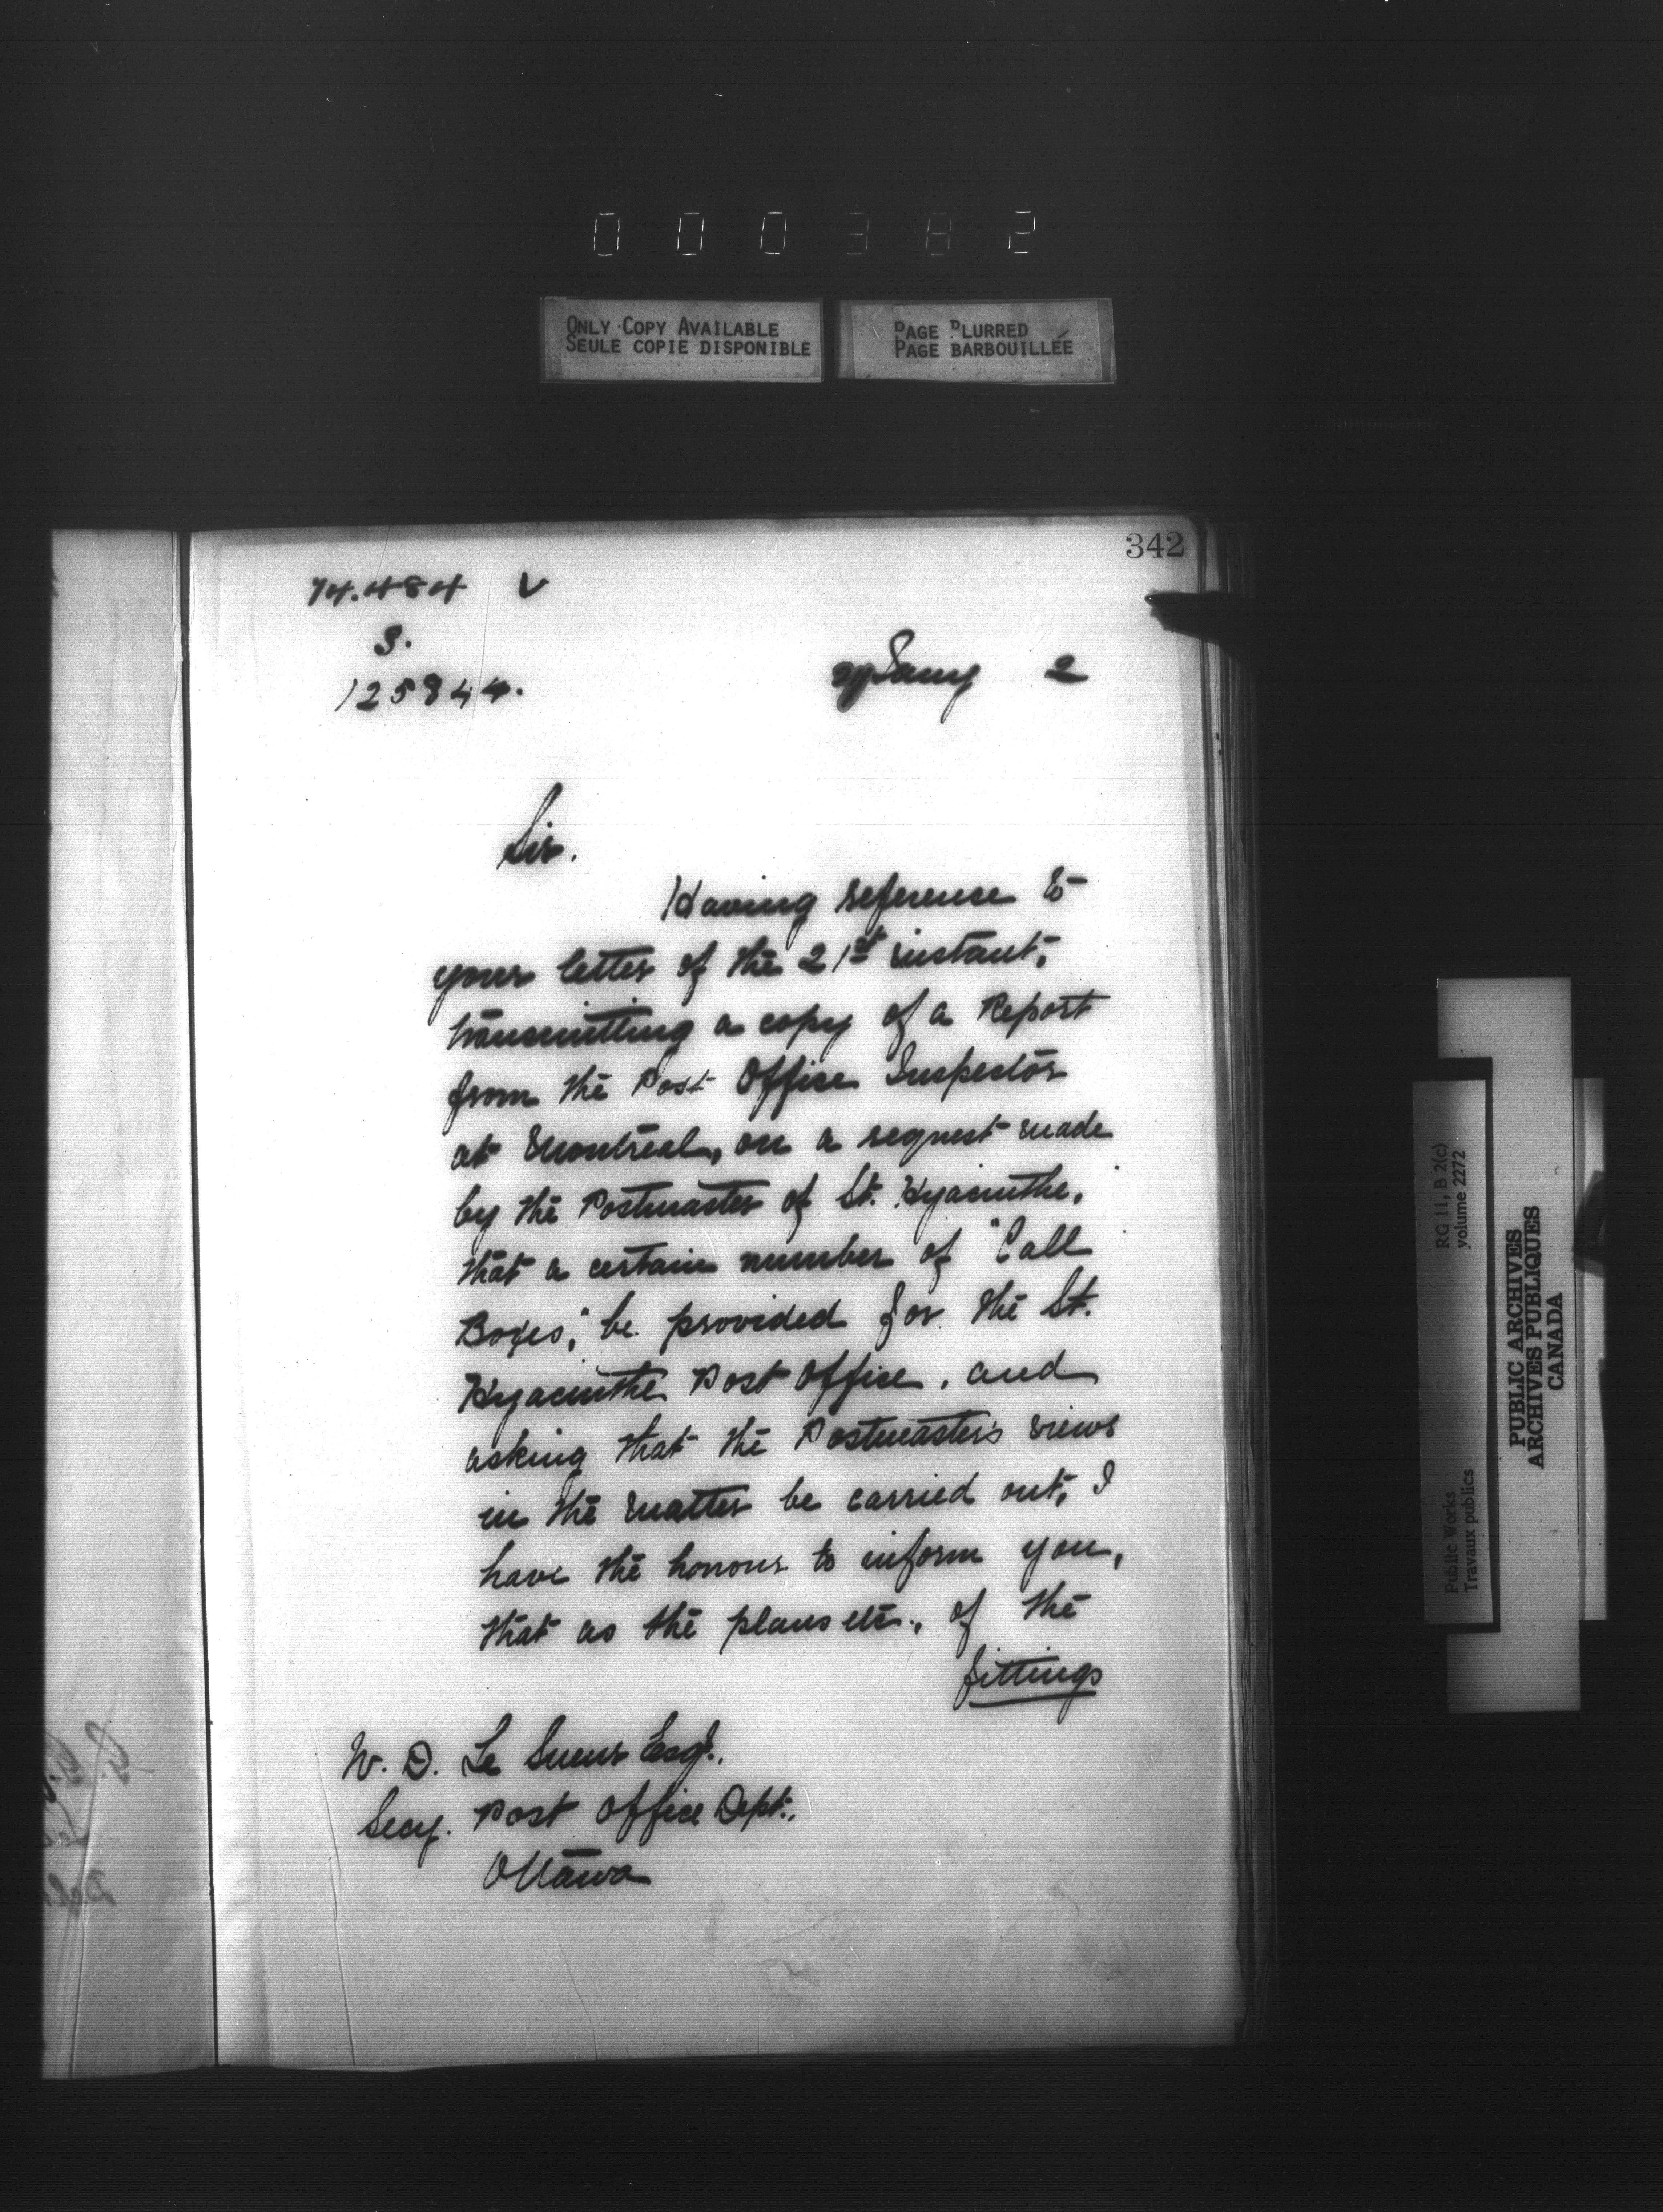 000382
ONLY COPY AVAILABLE
SEULE COPIE DISPONIBLE
PAGE BLURRED
PAGE BARBOUILLÉE
342
74.484 V
S.
125844.
Jany 2
Sir.
Having reference to
your letter of the 21st instant,
transmitting a copy of a Report
from the Post Office Inspector
at Montreal, on a request made
by the Postmaster of St. Hyacinthe,
that a certain number of "Call
Boxes," be provided for the St.
Hyacinthe Post Office, and
asking that the Postmaster's views
in the matter be carried out, I
have the honour to inform you,
that as the plans etc., of the
fittings
W. D. Le Sueur Esq.,
Secy. Post Office Dept.,
Ottawa
Public Works
Travaux publics
RG 11, B 2(c)
volume 2272
PUBLIC ARCHIVES
ARCHIVES PUBLIQUES
CANADA